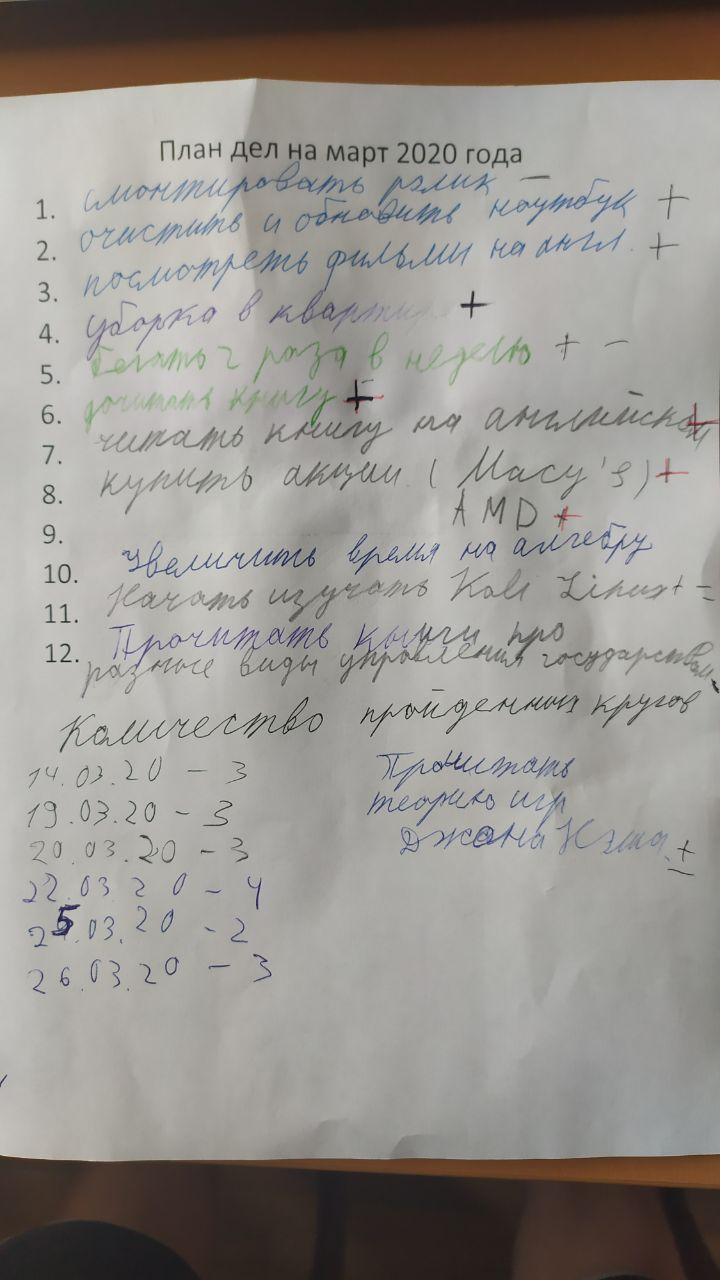 План дел на март 2020 года
1. смонтировать ролик —
2. очистить и обновить ноутбук +
3. посмотреть фильмы на англ. +
4. уборка в квартире +
5. бегать 2 раза в неделю + -
6. дочитать книгу +
7. читать книгу на английском +
8. купить акции (Macy's) +
AMD +
9.
10. Увеличить время на алгебру
11. Начать изучать Kali Linux + =
12. Прочитать книги про
разные виды управления государством
Количество пройденных кругов
14.03.20 - 3
19.03.20 - 3
20.03.20 - 3
22.03.20 - 4
25.03.20 - 2
26.03.20 - 3
Прочитать
теорию игр
Джона Нэша. ±